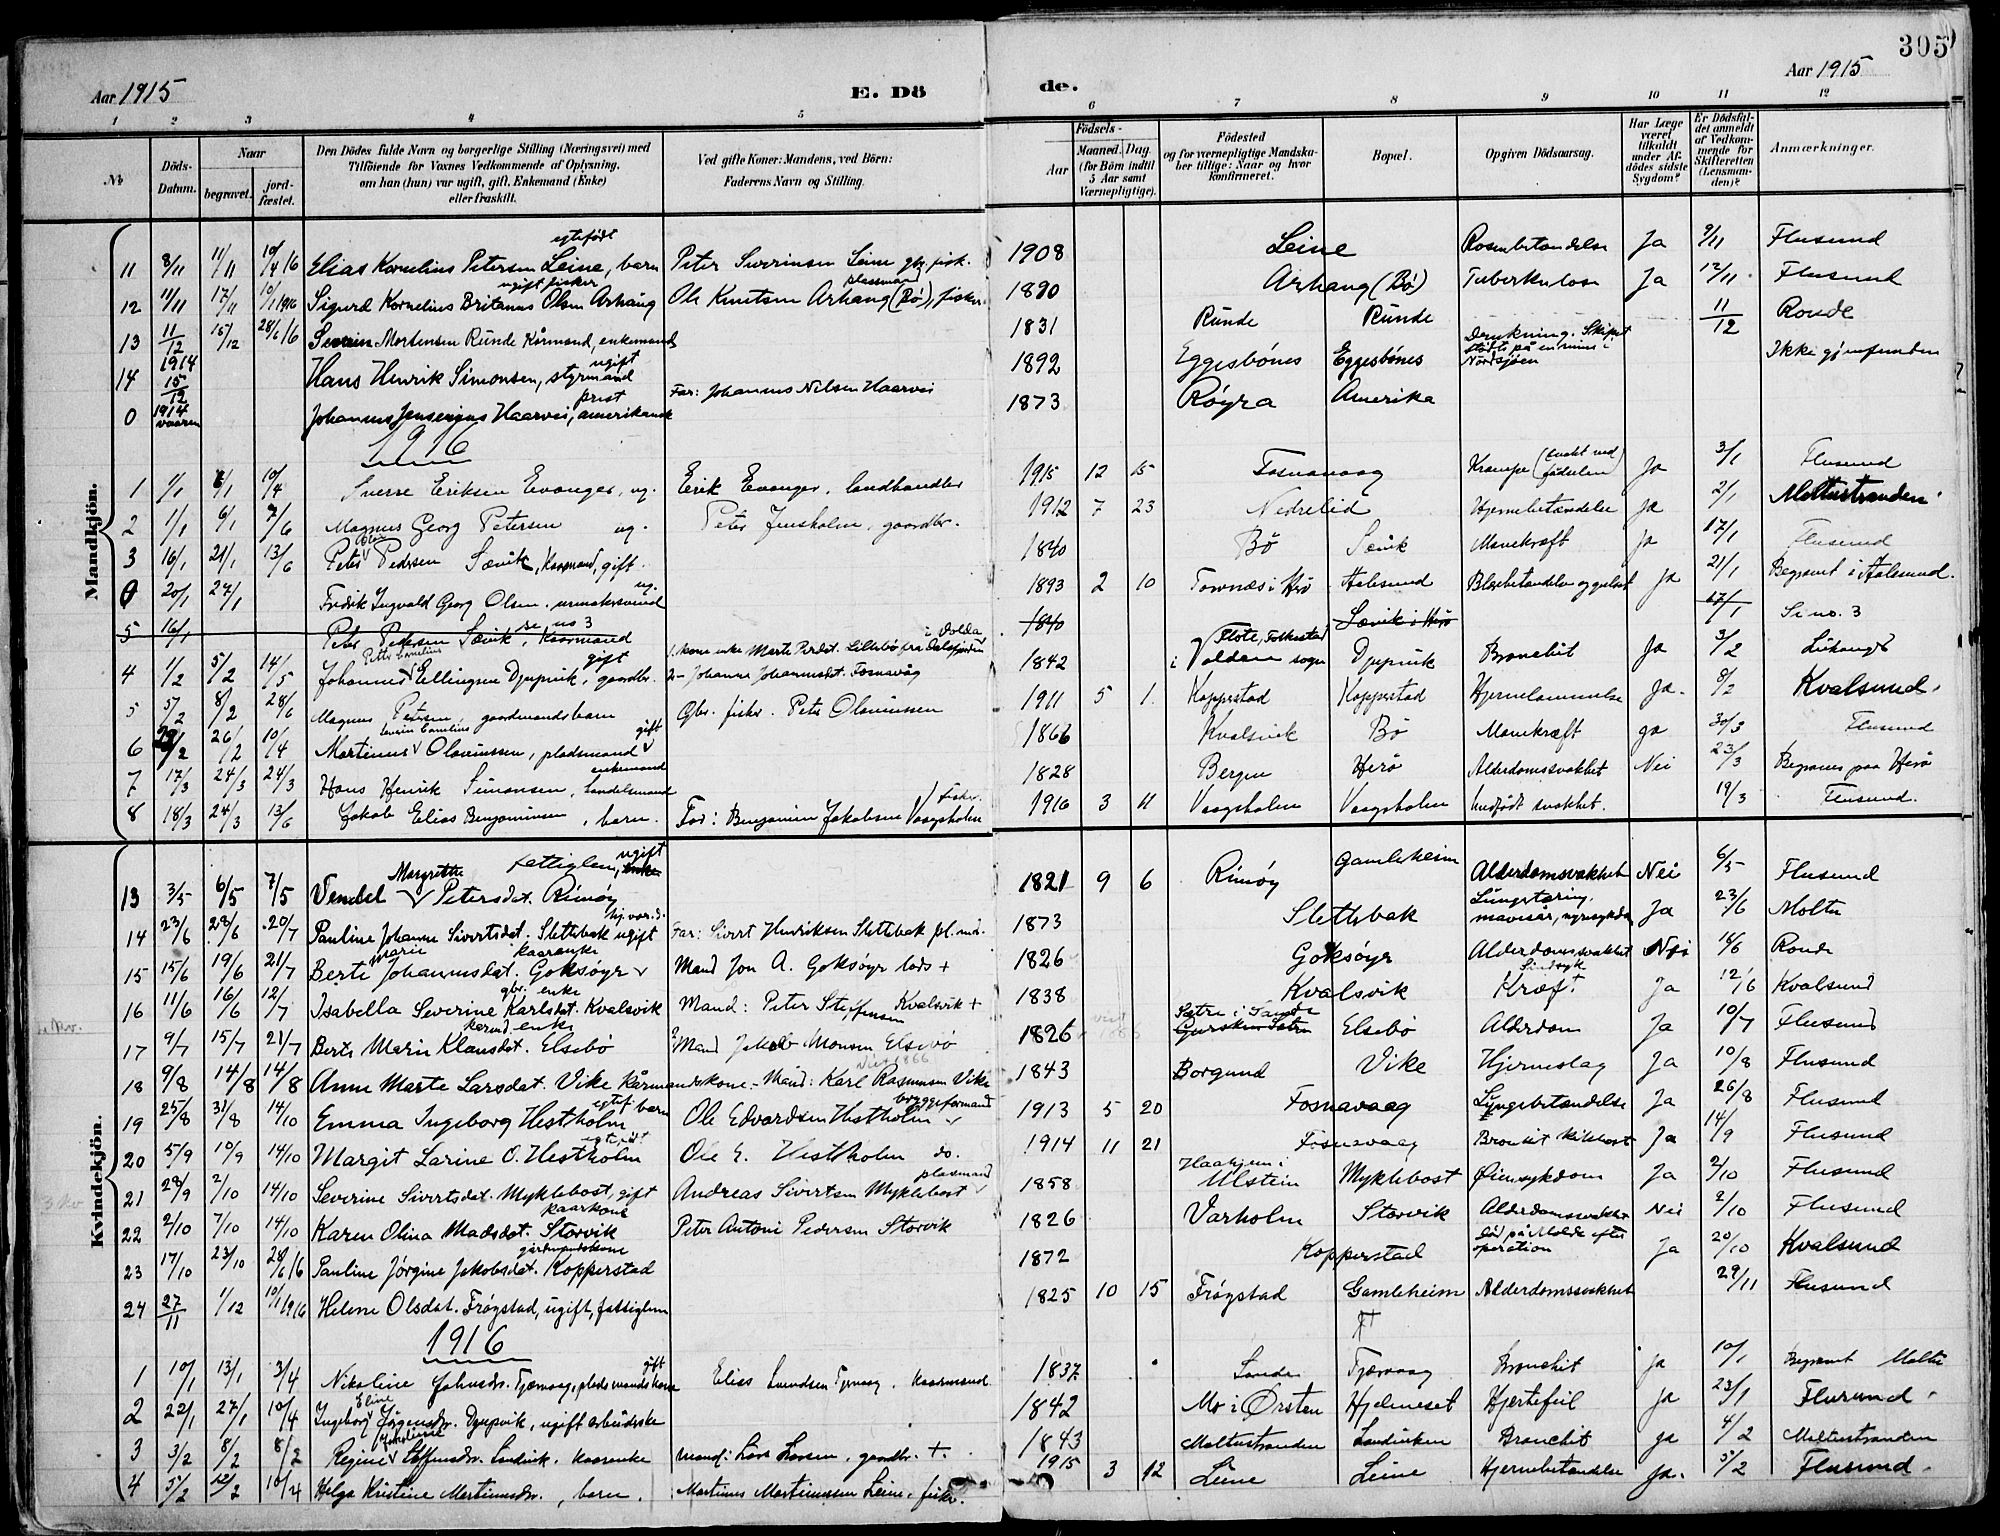 305
Aar 1915
E. Dö
de.
Aar 1915
1 2 3 4 5 6 7 8 9 10 11 12
№
Döds-Datum.
Naar
begravet.
jord-fæstet.
Den Dödes fulde Navn og borgerlige Stilling (Næringsvei) med Tilföiende for Voxnes Vedkommende af Oplysning, om han (hun) var ugift, gift, Enkemand (Enke) eller fraskilt.
Ved gifte Koner: Mandens, ved Börn: Faderens Navn og Stilling.
Födsels-
Aar
Maaned. Dag.
(for Börn indtil 5 Aar samt Værnepligtige).
Födested og for værnepligtige Mandskaber tillige: Naar og hvor konfirmeret.
Bopæl.
Opgiven Dödsaarsag.
Har Læge været tilkaldt under Afdödes sidste Sygdom?
Er Dödsfaldet anmeldt af Vedkommende for Skifteretten (Lensmanden)?
Anmærkninger.
Mandkjön.
11 8/11 11/11 10/4 16 Elias Kornelius Petersen Leine, barn egtefödt Peter Severinsen Leine gbr. fisk. 1908 Leine Ja 9/11 Flusund
12 11/11 17/11 10/1 1916 Sigurd Kornelius Britanus Olsen Arhaug ugift fisker Ole Knutsen Arhaug (Bö), fisker plassman 1890 Arhaug (Bö) Tuberkulose Ja 12/11 Flusund
13 11/12 15/12 28/6 16 Severin Mortensen Runde Kårmand, enkemand 1831 Runde Runde 11/12 Ronde
14 1914 15/12 Hans Henrik Simonsen, styrmand ugift 1892 Eggesbönes Eggesbönes Drukning. Skipet stötte på en mine i Nordsjöen Ikke gjenfunden
0 1914 vaaren Johannes Jensenius Haarvei, amerikansk prest Far: Johannes Nilsen Haarvei 1873 Röyra Amerika
1916
1 1/1 6/1 10/4 Sverre Eriksen Evanger, ug. Erik Evanger, landhandler 1915 12 15 Fosnavaag Krampe (kvalt ved födselen) Ja 3/1 Flusund
2 1/1 6/1 7/6 Magnus Georg Petersen ug. Peter Jensholm, gaardbr. 1912 7 23 Nedrelid Hjernebetændelse Ja 2/1 Moltustranden
3 16/1 21/1 13/6 Peter Elias Pedersen Sævik, Kaarmand, gift. 1840 Bö Sævik Mavekræft Ja 17/1 Flusund
0 20/1 27/1 Fredrik Ingvald Georg Olsen, urmakersvend ug. 1893 2 10 Tornnæs i Herö Aalesund Ja 21/1 Begravet i Aalesund.
5 16/1 Peter Pedersen Sævik, Kaarmand se no 3 1840 Sævik i Herö 17/1 Se no. 3
4 1/2 5/2 14/5 Johannes Petter Cornelius Ellingsen Djupvik, gaardbr. gift 1. kone enke Marte Perdat. Lillebö fra Dalsfjorden i Volda
2- Johanne Johannesdat. Fosnavåg 1842 Flöte, Folkestad i Volden sogn Djupvik Bronchit Ja 3/2
5 5/2 8/2 28/6 Magnus Petersen, gaardmandsbarn Gbr. fisker Peter Olaivissen 1911 5 1 Kopperstad Kopperstad Hjernelammelse Ja. 8/2 Kvalsund
6 26/2 10/4 Martinus Severin Cornelius Olaivissen, pladsmand gift 1866 Kvalsvik Bö Mavekræft ja 30/3 Flusund
7 17/3 24/3 24/3 Hans Henrik Simonsen, handelsmand enkemand 1828 Bergen Herö Alderdomssvakhet Nei 23/3 Begraves paa Herö
8 18/3 24/3 13/6 Jakob Elias Benjaminsen, barn. Far: Benjamin Jakobsen Vaagsholm fisker 1916 3 11 Vaagsholm Vaagsholm Medfödt svakhet. 19/3 Flusund.
Kvindekjön.
13 3/5 6/5 7/5 Vendel Margrethe Petersdat. Rimöy Fattiglem, ugift enke 1821 9 6 Rimöy Gamleheim Alderdomssvakhet Nei 6/5 Flusund
14 23/6 29/6 20/7 Pauline Johanne Sivertsdat. Slettebak ugift Far: Sivert Henriksen Slettebak pl.md. 1873 Slettebak Lungetæring, mavesår, nyresykdom Ja 23/6 Moltu
15 15/6 19/6 21/7 Berte Marie Johannesdat. Goksöyr kaarenke Mand Jon A. Goksöyr lods + 1826 Goksöyr Alderdomssvakhet Sindsyk Nei 16/6 Ronde
16 11/6 16/6 12/7 Isabella Severine Karlsdat. Kvalsvik gbr. enke Mand: Peter Steffensen Kvalsvik + 1838 Kvalsvik Kræft Ja 12/6 Kvalsund
17 9/7 15/7 21/7 Berte Marie Klausdat. Elsebö kårmd. enke Mand Jakob Monsen Elsebö 1826 Sætre i Sande Gursken Sætre Elsebö Alderdom Ja 10/7 Flusund
18 9/8 14/8 14/8 Anne Marte Larsdat. Vike kårmandskone - Mand: Karl Rasmussen Vike viet 1866 1843 Borgund Vike Hjerneslag Ja 10/8 Flusund
19 25/8 31/8 14/10 Emma Ingeborg Hestholm egtef. barn Ole Edvardsen Hestholm bryggeformand 1913 5 20 Fosnavaag Lungebetændelse Ja 26/8 Flusund
20 5/9 10/9 14/10 Margit Larine O. Hestholm egtefödt Ole E. Hestholm do. 1914 11 21 Fosnavaag Bronkit kikhost Ja 14/9 Flusund
21 28/9 2/10 14/10 Severine Sivertsdat. Myklebost, gift Andreas Sivertsen Myklebost pladsmand 1858 Haahjem i Ulstein Myklebost Öiensykdom Ja 2/10 Flusund
22 2/10 7/10 14/10 Karen Olina Madsdat. Storvik kaarkone Peter Antoni Pedersen Storvik 1826 Varholm Storvik Alderdomssvakhet Nei 2/10 Flusund
23 17/10 23/10 28/6 16 Pauline Jörgine Jakobsdat. Kopperstad gårdmandskone 1872 Kopperstad Död på Molde efter operation Ja 20/10 Kvalsund
24 27/11 1/12 10/1 1916 Helene Olsdat. Frögstad, ugift, fattiglem 1825 10 15 Frögstad Gamleheim Alderdomssvakhet 29/11 Flusund
1916
1 10/1 13/1 3/4 Nikoline Johnsdr. Tjærvaag, pladsmandskone gift Elias Tjærvaag. Kaarmand 1837 Sande Tjærvaag Bronchit ja 10/1 Begravet Moltu
2 22/1 27/1 10/4 Ingeborg Eline Jörgensdr. Djupvik, ugift arbeiderske 1842 Mo i Örsten Hjelmeset Hjertefeil ja 23/1 Flusund
3 3/2 8/2 8/2 Regine Steffensdr. Sandvik. kaarenke Mand: Lars Larsen, gaardbr. + 1843 Moltustranden Sandviken Bronchit ja 4/2 Moltustranden
4 5/2 12/2 10/4 Helga Kristine Martinusdr., barn. Martinus Martinussen Leine, fisker. 1915 3 12 Leine Leine Hjernebetændelse ja. 5/2 Flusund